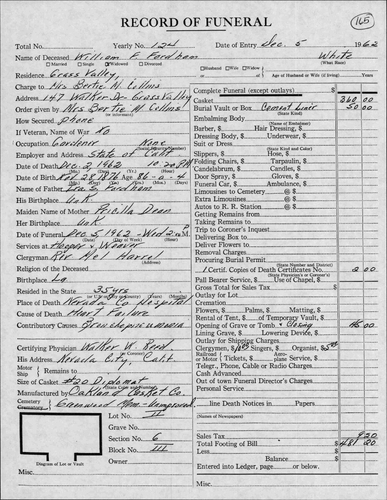 RECORD OF FUNERAL
165
Total No. Yearly No. 124 Date of Entry Dec. 5 1962
Name of Deceased William F. Fordham White
Married Single Widowed Divorced Husband Wife Widow (What Race)
Residence Grass Valley, Age of Husband or Wife (if living) Years
Charge to Mrs Bertie M. Collins
Address 147 Walker Dr. Grass Valley
Order given by Mrs Bertie M. Collins
(or informant)
How Secured phone
If Veteran, Name of War no
Occupation Gardener None
Employer and Address State of Calif
Date of Death Dec. 2, 1962 10:20 PM
Date of Birth Feb 28, 1876 86
Name of Father
His Birthplace UnK
Maiden Name of Mother Dean
Her Birthplace UnK
Date of Funeral Dec. 5, 1962 - Wed 2 P.M.
Services at Hooper & Weaver
Clergyman Rev. Mel Harrel
Religion of the Deceased
Birthplace La
Resided in the State 35 yrs
Place of Death Nevada Co. Hospital
Cause of Death Heart Failure
Contributory Causes Bronchopneumonia
Certifying Physician Walker W. Reed
His Address Nevada City, Calif.
Motor Ship Remains to
Size of Casket #20 Diplomat
Manufactured by Oakland Casket Co.
Cemetery Crematory Greenwood Mem.
Lot No. II
Grave No.
Section No. 6
Block No. III
Owner
Diagram of Lot or Vault
Misc.
Complete Funeral (except outlays) $
Casket 360 00
Burial Vault or Box Cement Liner 50 00
(State Kind)
Embalming Body
(Name of Embalmer)
Barber, $ Hair Dressing, $
Dressing Body, $ Underwear, $
Suit or Dress
(State Kind and Color)
Slippers, $ Hose, $
Folding Chairs, $ Tarpaulin, $
Candelabrum, $ Candles, $
Door Spray, $ Gloves, $
Funeral Car, $ Ambulance, $
Limousines to Cemetery @ $
Extra Limousines @ $
Autos to R. R. Station @ $
Getting Remains from
Taking Remains to
Trip to Coroner's Inquest
Delivering Box to
Deliver Flowers to
Removal Charges
Procuring Burial Permit
(State Number and District)
1 Certif. Copies of Death Certificates No. 2 00
(State Physician's or Coroner's)
Pall Bearer Service, $ Use of Chapel, $
Gross Total for Sales Tax $
Outlay for Lot
Cremation
Flowers, $ Palms, $ Matting, $
Rental of Tent, $ of Temporary Vault, $
Opening of Grave or Tomb + Closing
Lining Grave, $ Lowering Device, $
Outlay for Shipping Charges
Clergyman, $ Singers, $ Organist, $
Railroad Motor Tickets, $ Aeroplane Service, $
Telegr., Phone, Cable or Radio Charges
Cash Advanced
Out of town Funeral Director's Charges
Personal Service
line Death Notices in Papers
(Names of Newspapers)
Sales Tax 9 20
Total Footing of Bill 481 20
Less
Balance $
Entered into Ledger, page or below.
Misc.